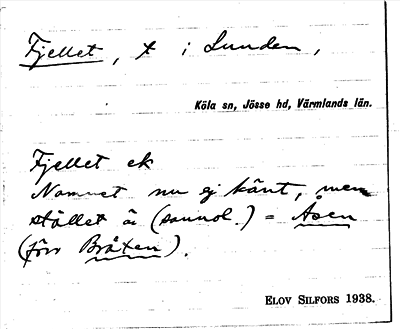 Fjellet, t i Lunden,
Köla sn, Jösse hd, Värmlands län.
Fjellet ek
Namnet nu ej känt, men
stället är (sannol.) = Åsen
(förr Bråten).
ELOV SILFORS 1938.